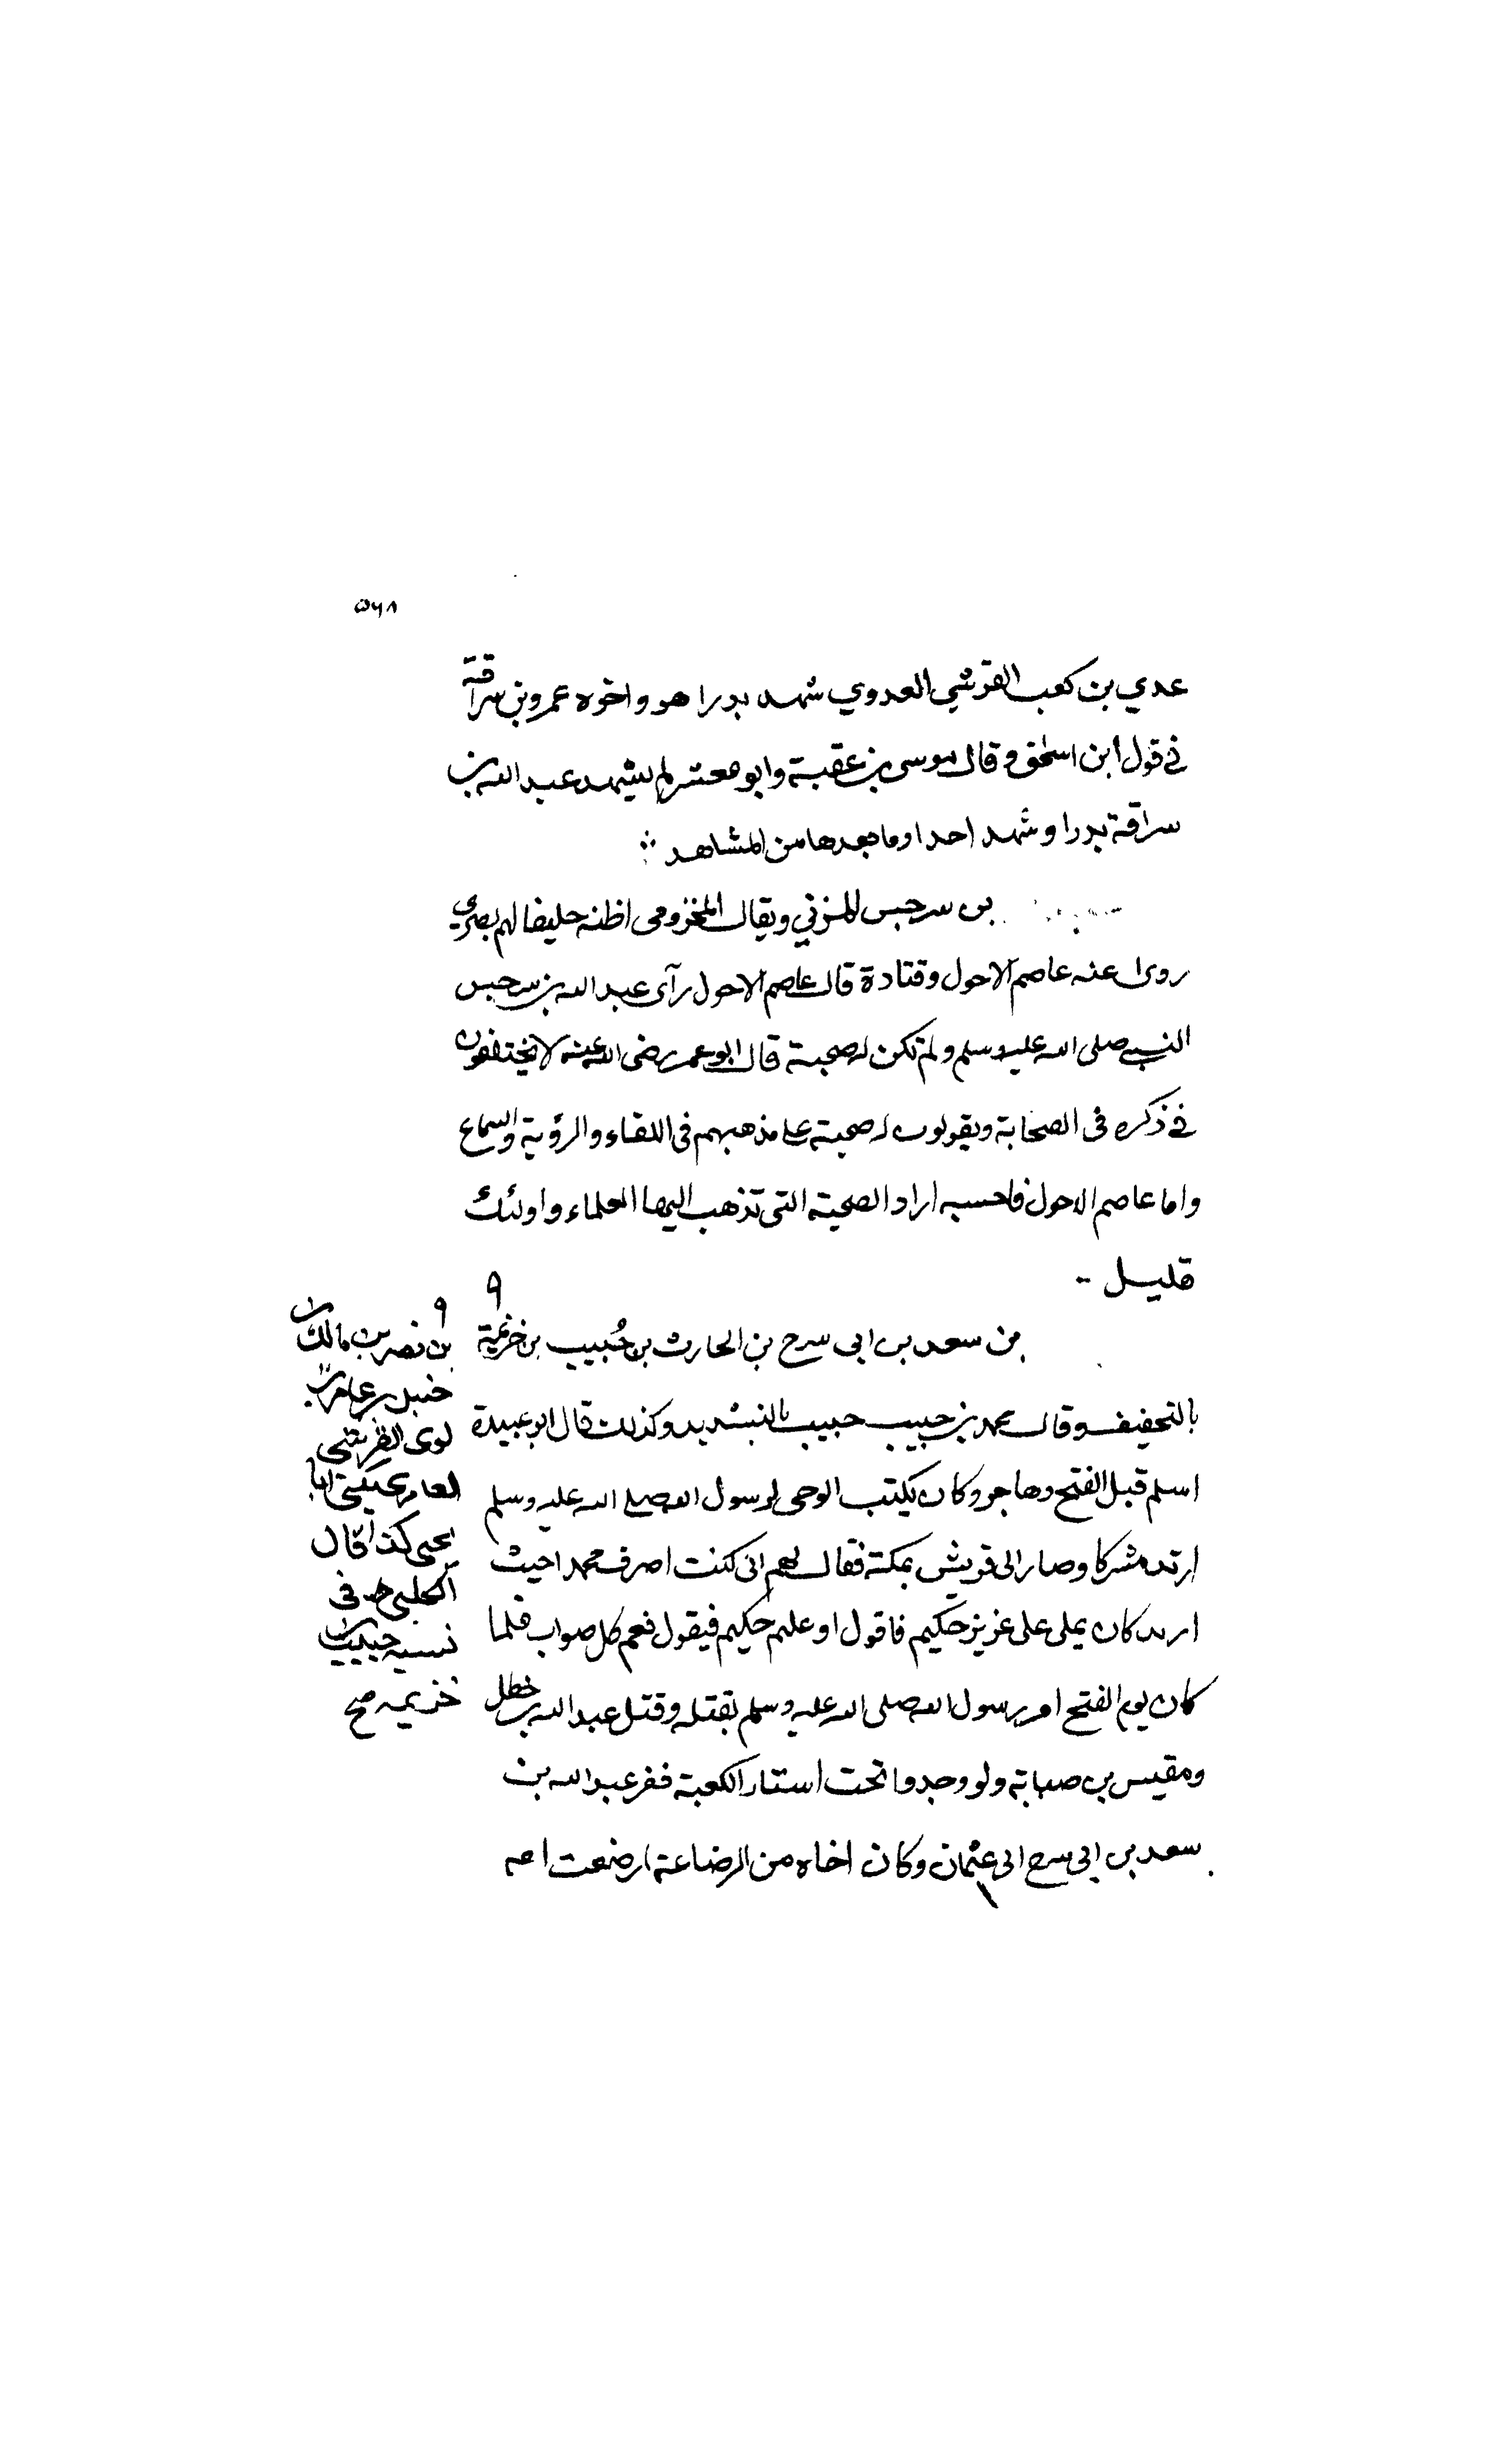 ٥٦٨
عدي بن كعب القرشي العدوي شهد بدرا هو واخوه عمرو بن سراقة
في قول ابن اسحق وقال موسى بن عقبة وابو معشر لم يشهد عبد الله بن
سراقة بدرا وشهد احدا وما بعدها من المشاهد
بن سرجس المزني ويقال المخزومى اظنه حليفا لهم بصري
روى عنه عاصم الاحول وقتادة قال عاصم الاحول رآى عبد الله بن سرجس
النبي صلى الله عليه وسلم ولم تكن له صحبة قال ابو عمر رضى الله عنه لا يختلفون
في ذكره فى الصحابة ويقولون له صحبة على مذهبهم فى اللقاء والرؤية والسماع
واما عاصم الاحول فاحسبه اراد الصحبة التى تذهب اليها العلماء واولئك
قليل
بن سعد بن ابى سرح بن الحارث بن حُبيب بن خزيمة
بالتخفيف وقال محمد بن حبيب حبيب بالتشديد وكذلك قال ابو عبيدة
اسلم قبل الفتح وهاجر وكان يكتب الوحى لرسول الله صلى الله عليه وسلم
ارتد مشركا وصار الى قريش بمكة فقال لهم انى كنت اصرف محمد احيث
اريد كان يملى على عزيز حكيم فاقول او عليم حكيم فيقول نعم كل صواب فلما
كان يوم الفتح امر رسول الله صلى الله عليه وسلم بقتله وقتل عبد الله بن خطل
ومقيس بن صبابة ولو وجدوا تحت استار الكعبة ففر عبد الله بن
سعد بن ابى سرح الى عثمان وكان اخاه من الرضاعة ارضعت امه
بن نصر بن مالك بن
حنبل بن عامر بن
لوى القريشى
العامرى يكنى ابا
يحيى كذا قال
الكلبى فى
نسبه حبيب بن
خزيمه صح